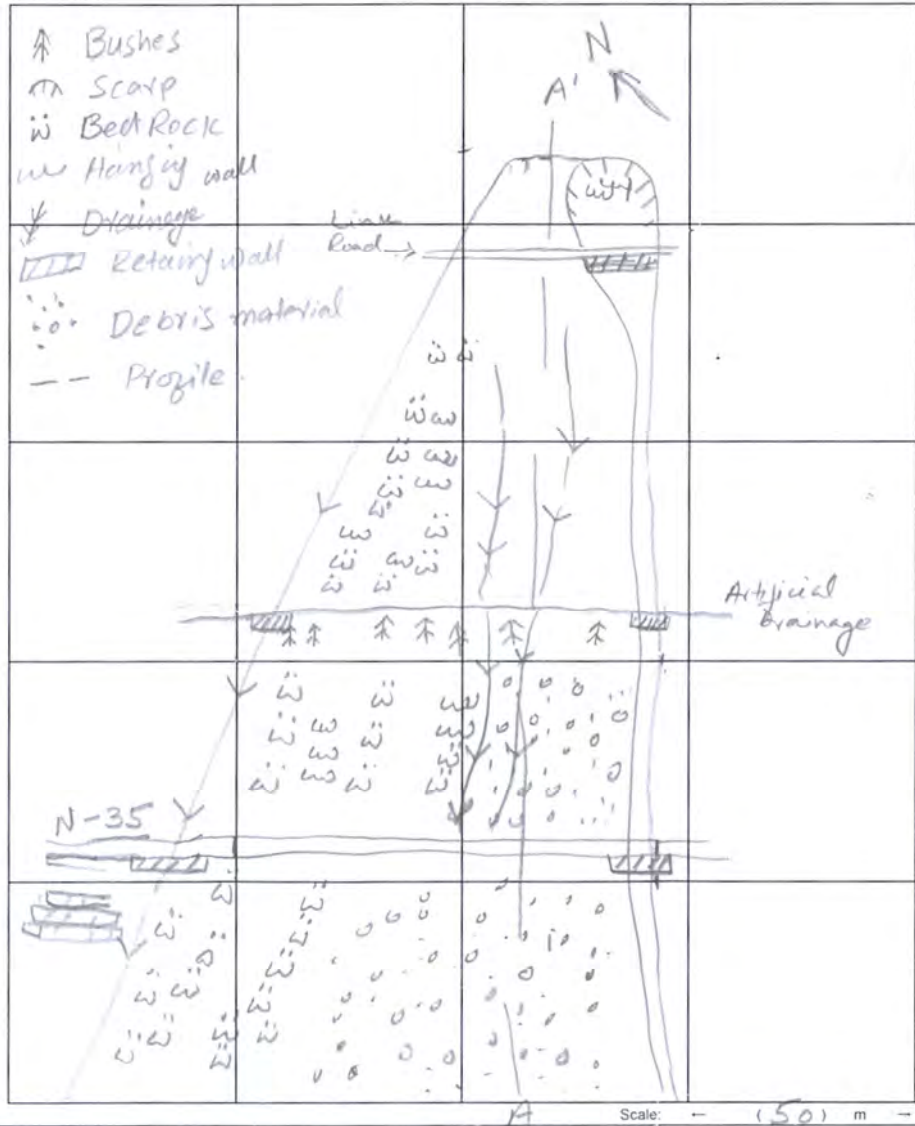 Bushes
Scarp
Bed Rock
Hangig wall
Drainage
Retaing wall
Debris material
Profile
N
A'
Link
Road
Artificial
Drainage
N-35
A
Scale: ← (50) m →